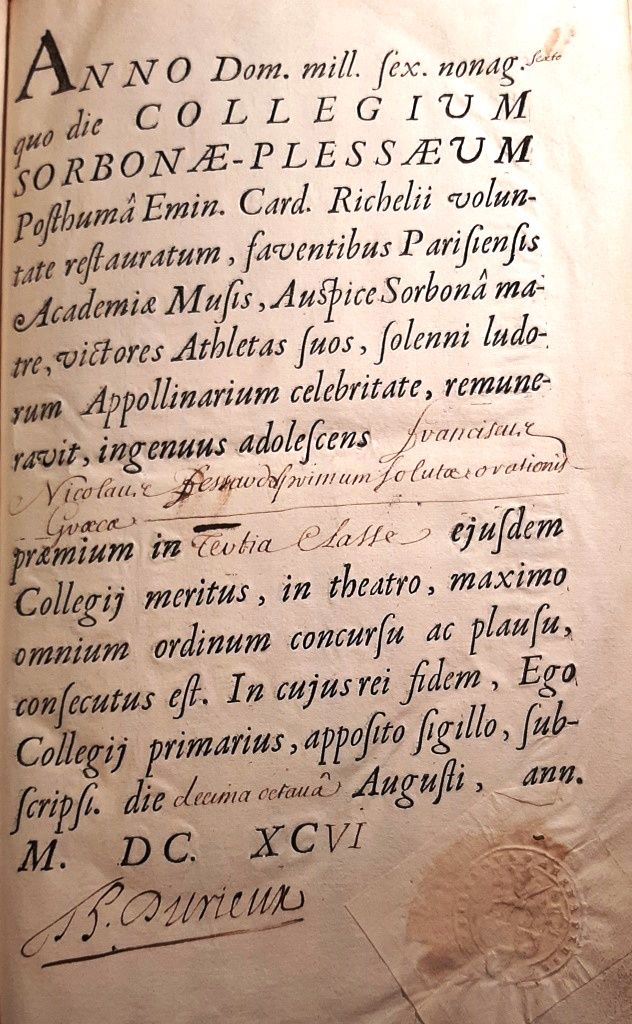 ANNO Dom. mill. ſex. nonag. sexto
quo die COLLEGIUM
SORBONÆ-PLESSÆUM
Poſthumâ Emin. Card. Richelii volun-
tate reſtauratum, faventibus Pariſienſis
Academiæ Muſis, Auſpice Sorbonâ ma-
tre, victores Athletas ſuos, ſolenni ludo-
rum Appollinarium celebritate, remune-
ravit, ingenuus adoleſcens Franciscus
Nicolaus primum solutæ orationis
Græcæ
præmium in Tertia Classe ejuſdem
Collegij meritus, in theatro, maximo
omnium ordinum concurſu ac plauſu,
conſecutus eſt. In cujus rei fidem, Ego
Collegij primarius, appoſito ſigillo, ſub-
ſcripſi. die decima octauâ Auguſti, ann.
M. DC. XCVI
B. Durieux